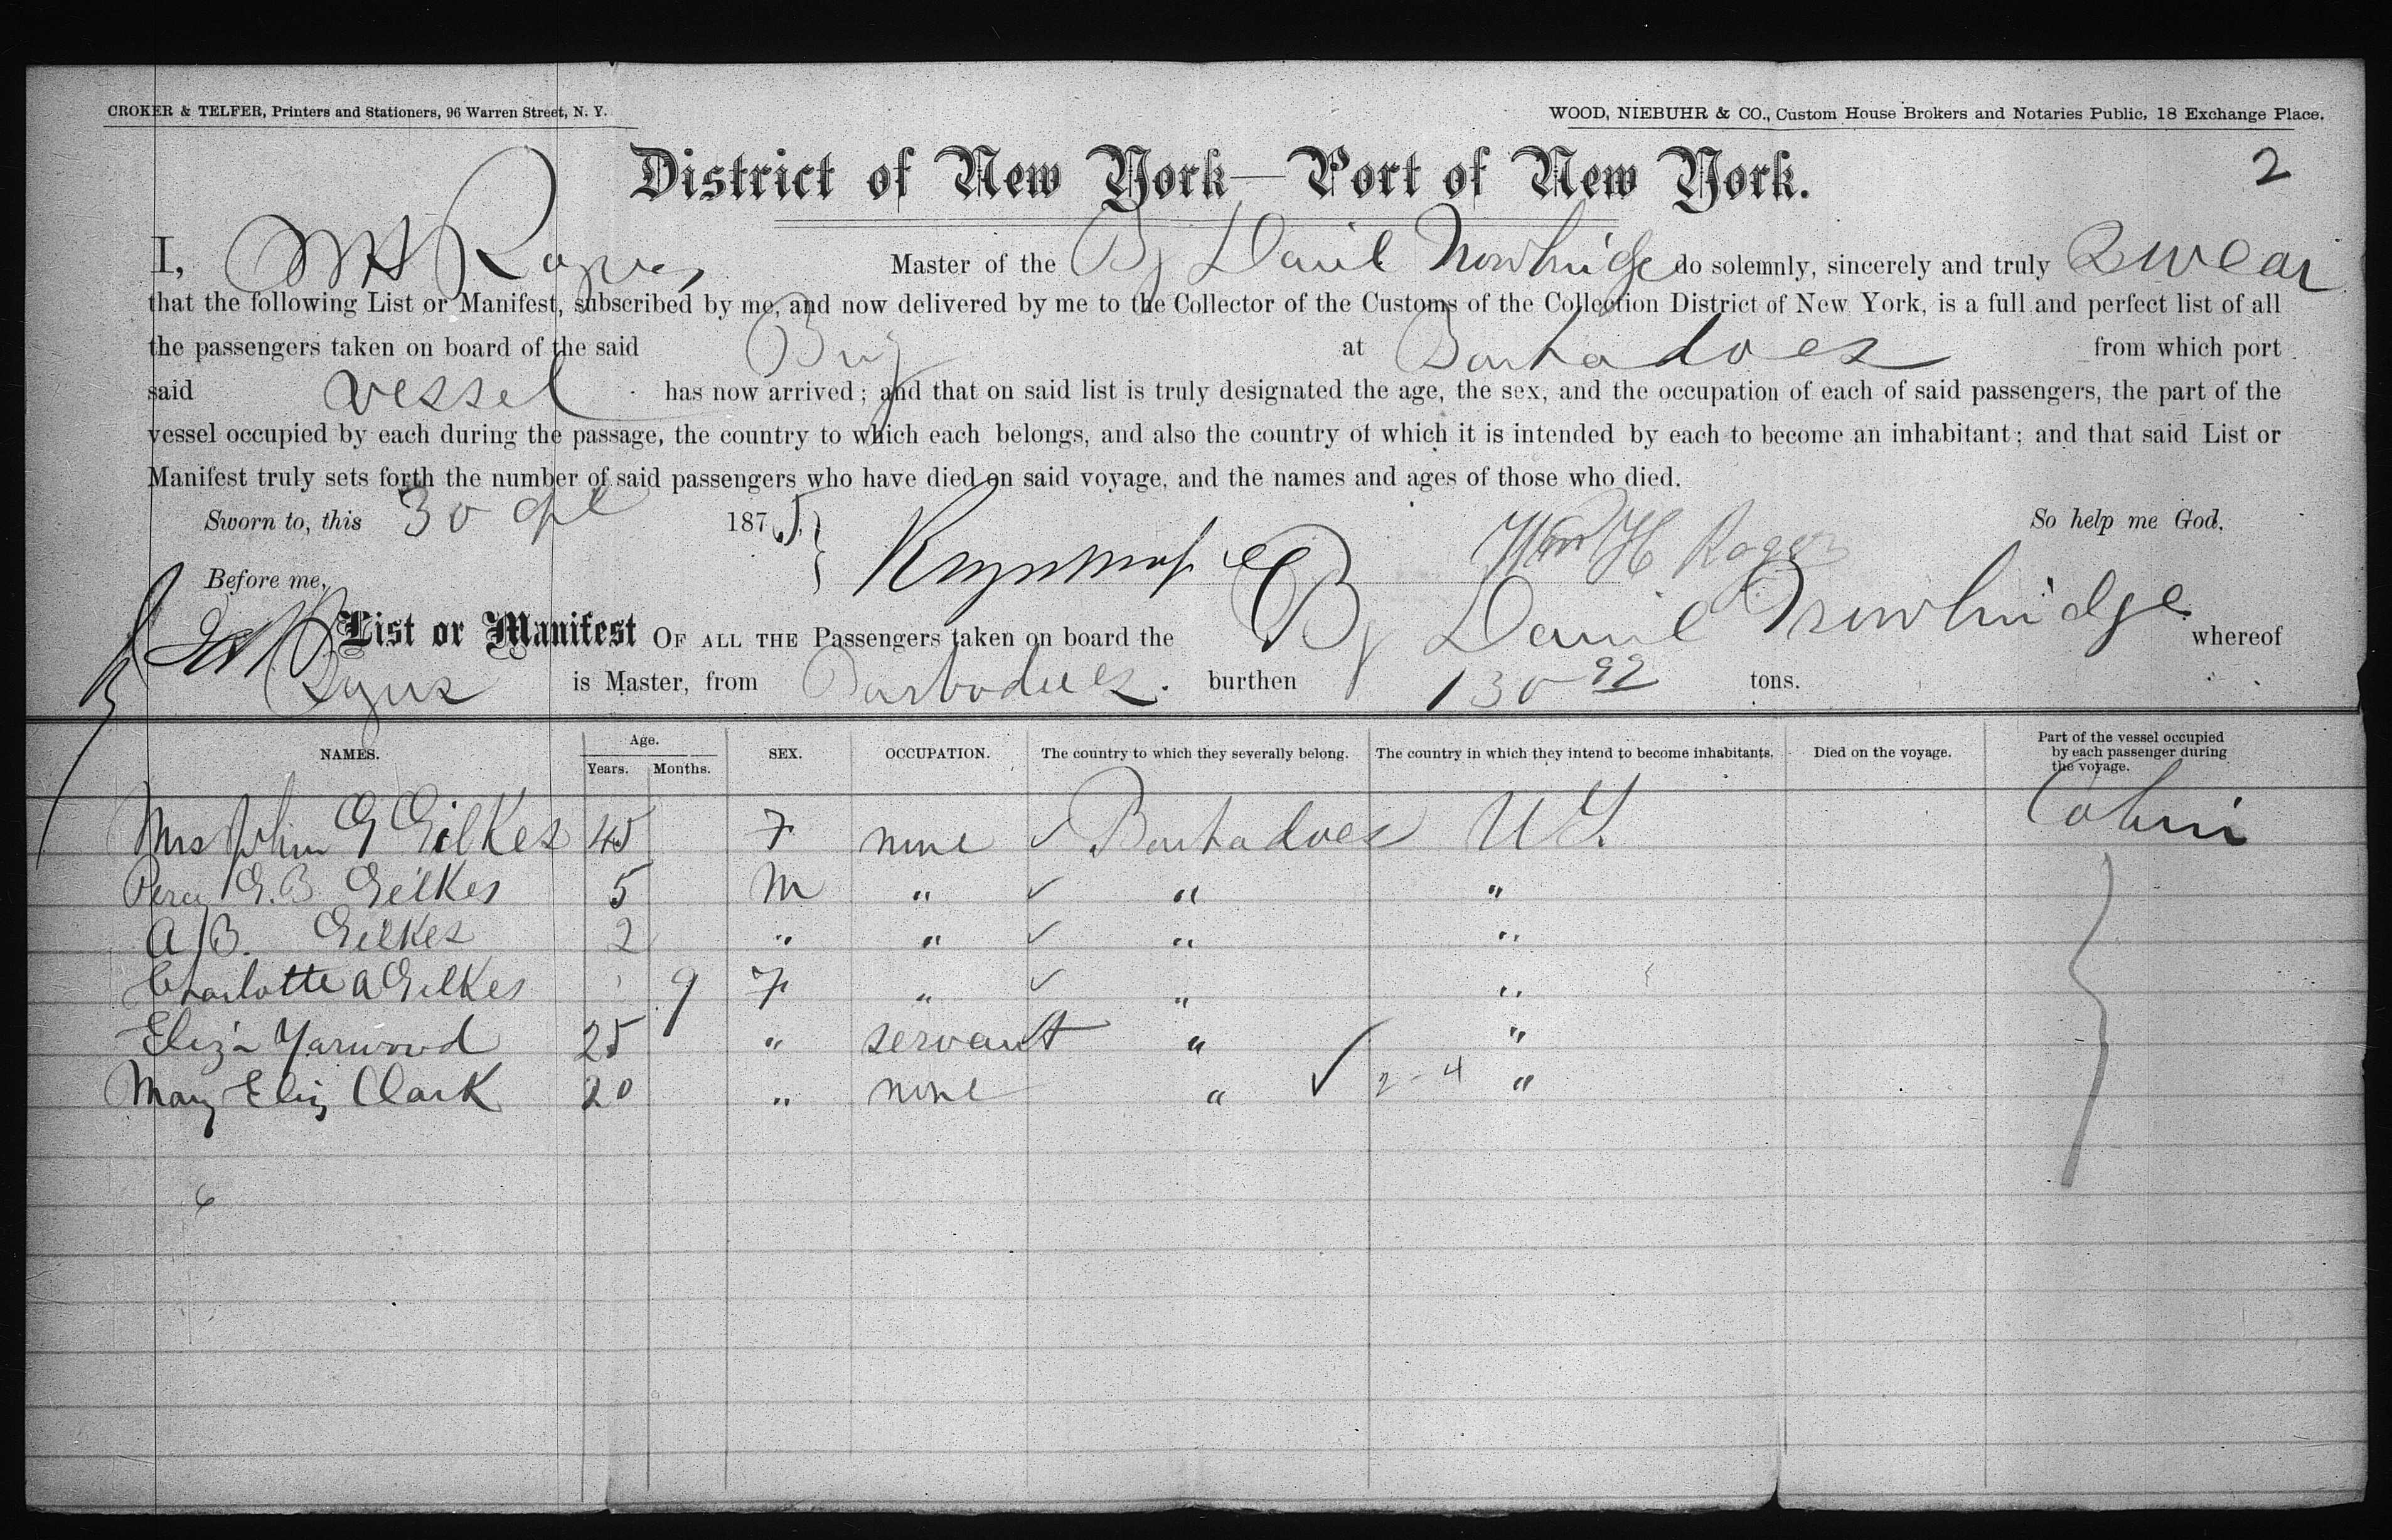 CROKER & TELFER, Printers and Stationers, 96 Warren Street, N. Y.
WOOD, NIEBUHR & CO., Custom House Brokers and Notaries Public, 18 Exchange Place.
District of New York—Port of New York.
2
I, W H Master of the Bg Daniel Trowbridge do solemnly, sincerely and truly swear
that the following List or Manifest, subscribed by me, and now delivered by me to the Collector of the Customs of the Collection District of New York, is a full and perfect list of all
the passengers taken on board of the said Brig at Barbadoes from which port
said vessel has now arrived; and that on said list is truly designated the age, the sex, and the occupation of each of said passengers, the part of the
vessel occupied by each during the passage, the country to which each belongs, and also the country of which it is intended by each to become an inhabitant; and that said List or
Manifest truly sets forth the number of said passengers who have died on said voyage, and the names and ages of those who died.
Sworn to, this 30 1875 So help me God.
Wm H Rogers
Before me,
List or Manifest OF ALL THE Passengers taken on board the Bg Daniel Trowbridge whereof
is Master, from Barbadoes. burthen 130 92 tons.
NAMES. Age. Years. Months. SEX. OCCUPATION. The country to which they severally belong. The country in which they intend to become inhabitants. Died on the voyage. Part of the vessel occupied by each passenger during the voyage.
Mrs John G Gilkes 45 F none ✓ Barbadoes U S. Cabin
Percy G. B Gilkes 5 M " ✓ " "
A B. Gilkes 2 " " ✓ " "
Charlotte A Gilkes 9 F " ✓ " "
Eliza Yarwood 25 " servant " "
Mary Eliz Clark 20 " none " ✓ 2-4 "
6